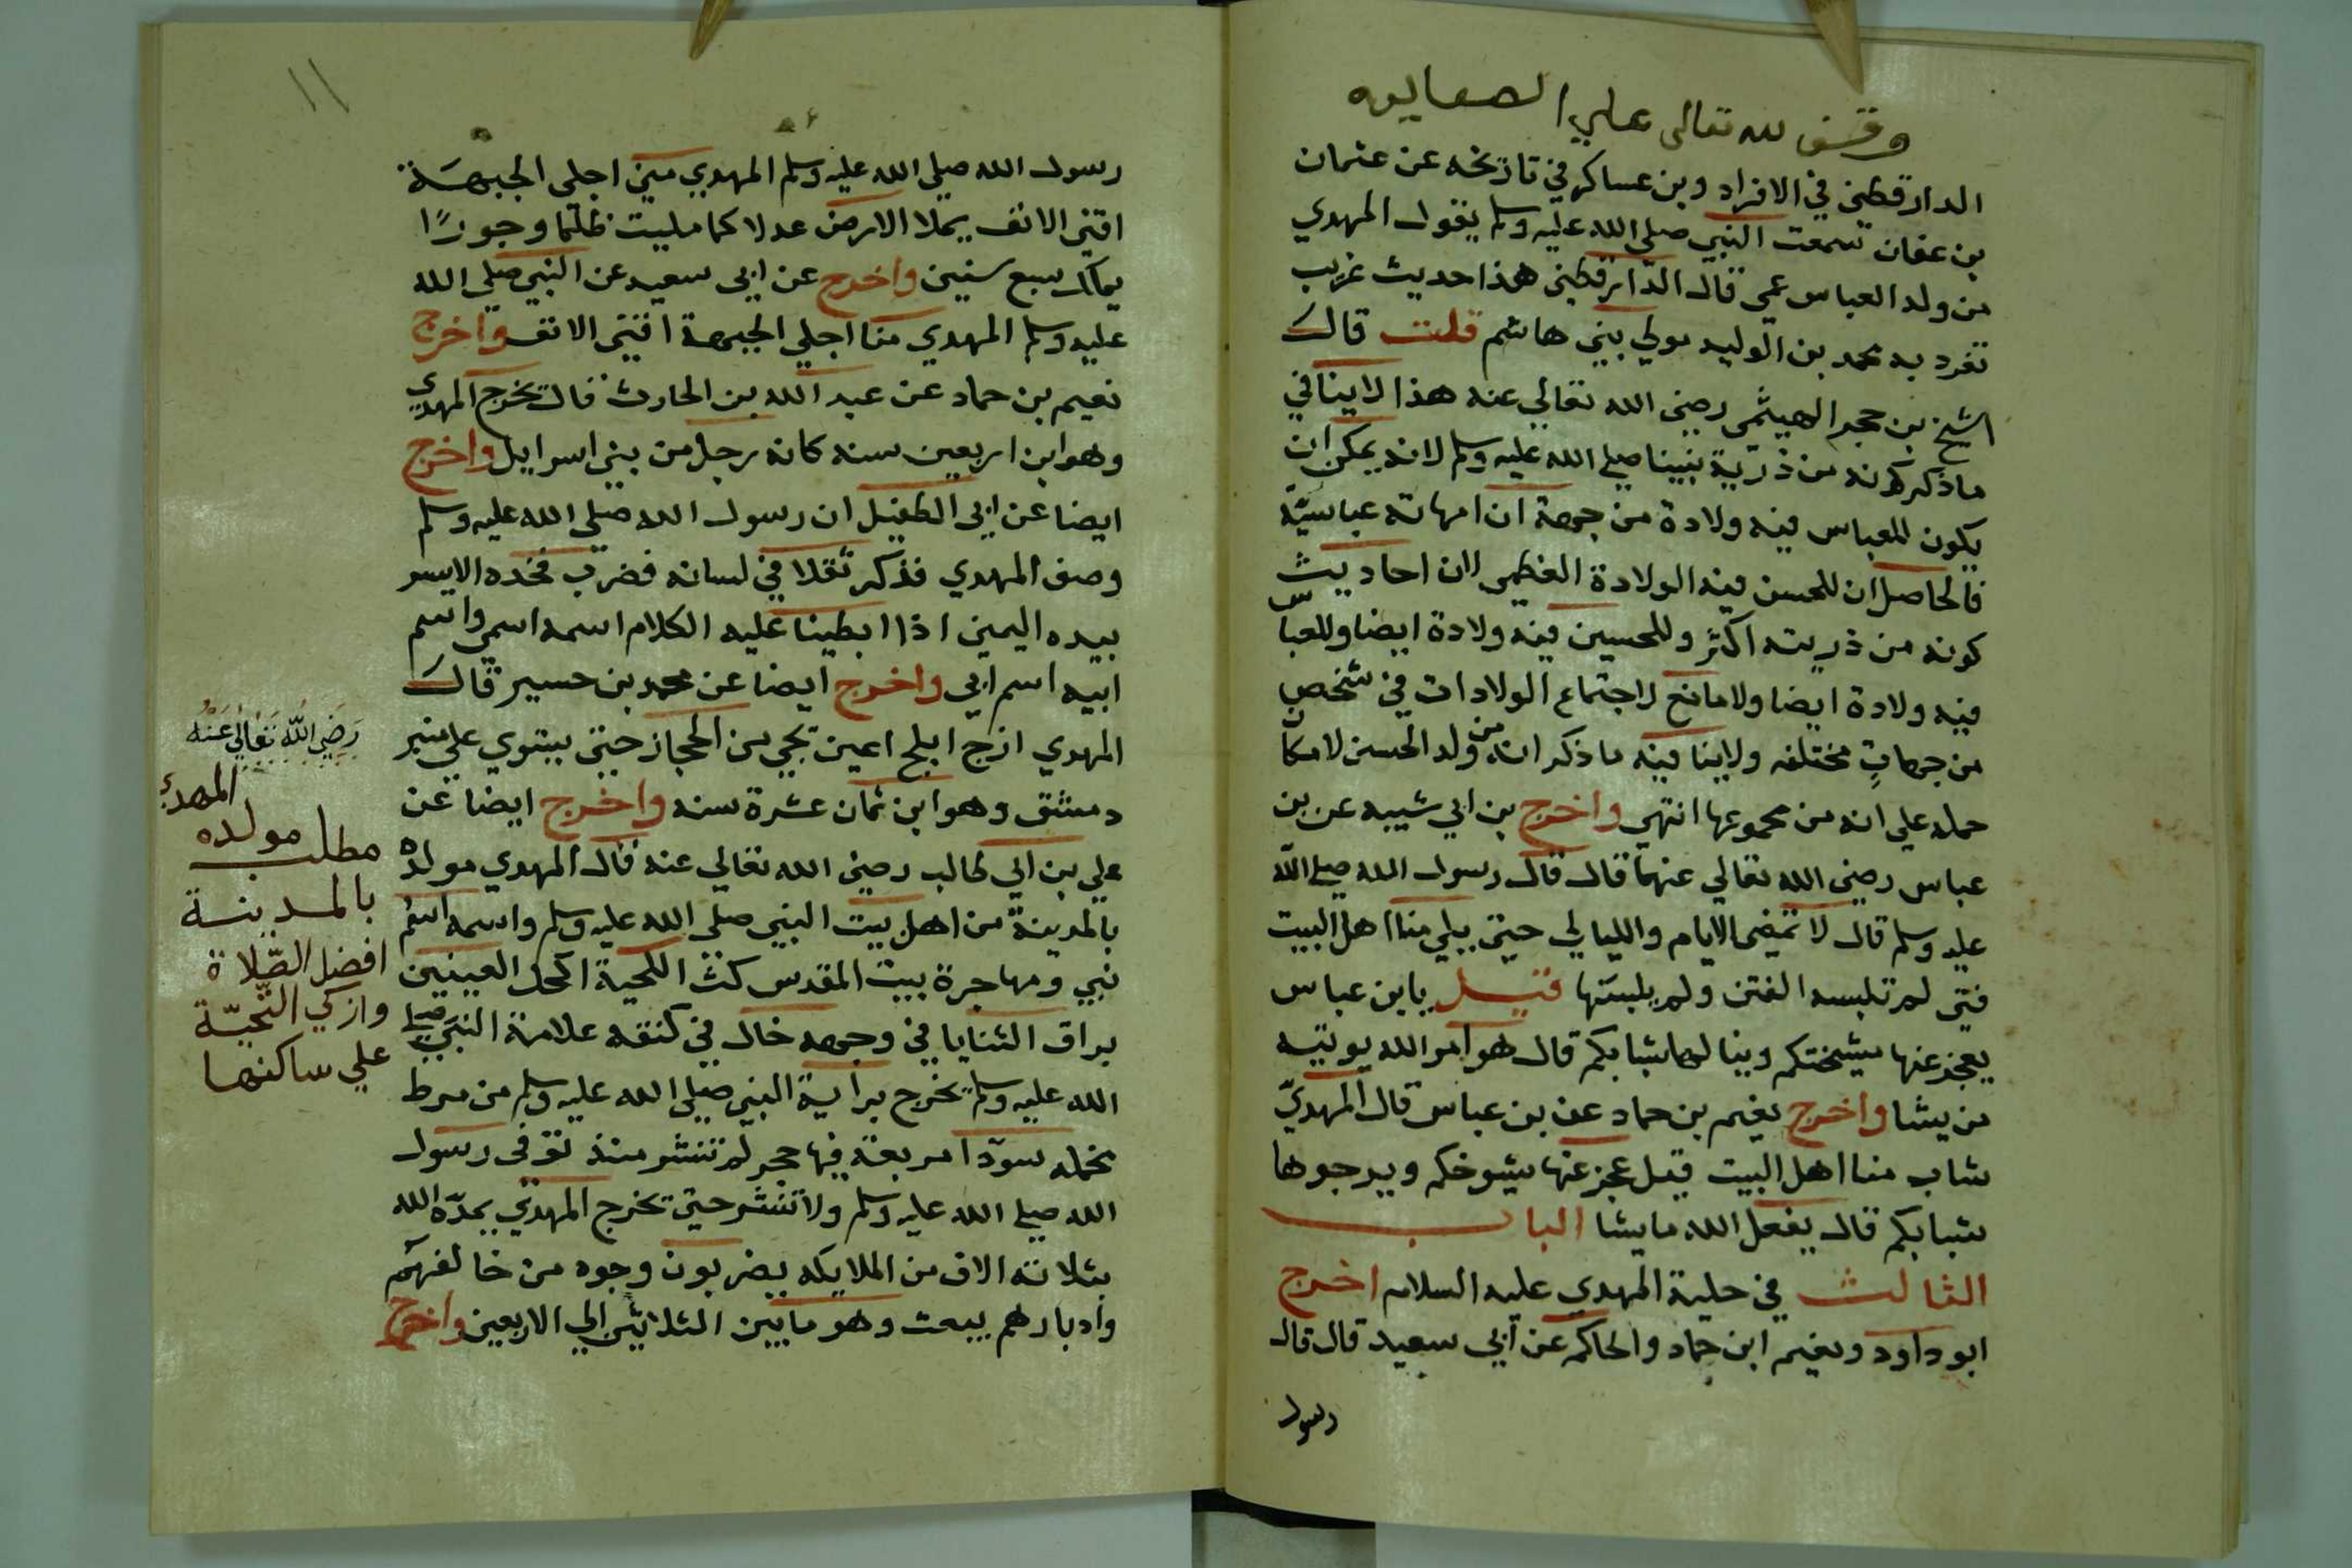 وقف لله تعالى علي الصعايده
الدارقطني في الافراد وبن عساكر في تاريخه عن عثمان
بن عفان سمعت النبي صلى الله عليه وسلم يقول المهدي
من ولد العباس عمي قال الدارقطني هذا حديث غريب
تفرد به محمد بن الوليد مولي بني هاشم قلت قال
الشيخ بن حجر الهيثمي رضي الله تعالي عنه هذا لا ينافي
ما ذكر كونه من ذرية نبينا صلي الله عليه وسلم لانه يمكن ان
يكون للعباس فيه ولادة من جهة ان امهاته عباسيّة
فالحاصل ان للحسن فيه الولادة العظمى لان احاديث
كونه من ذريته اكثر وللحسين فيه ولادة ايضا وللعباس
فيه ولادة ايضا ولا مانع لاجتماع الولادات في شخص
من جهاتٍ مختلفه ولا ينافيه ما ذكر انه من ولد الحسن لامكان
حمله علي انه من مجموعها انتهي واخرج بن ابي شيبه عن بن
عباس رضي الله تعالي عنهما قال قال رسول الله صلي الله
عليه وسلم قال لا تمضى الايام والليالي حتى يلي منا اهل البيت
فتى لم تلبسه الفتن ولم يلبسها قيل يا ابن عباس
يعجز عنها مشيختكم وينالها شبابكم قال هو امر الله يوتيه
من يشا واخرج نعيم بن حماد عن بن عباس قال المهديّ
شاب منا اهل البيت قيل عجز عنها شيوخكم ويرجوها
شبابكم قال يفعل الله ما يشا الباب
الثالث في حلية المهدي عليه السلام اخرج
ابو داود ونعيم ابن حماد والحاكم عن ابي سعيد قال قال
رسول
١١
رسول الله صلي الله عليه وسلم المهدي مني اجلي الجبهة
اقني الانف يملا الارض عدلا كما مليت ظلما وجورًا
يملك سبع سنين واخرج عن ابي سعيد عن النبي صلي الله
عليه وسلم المهدي منا اجلي الجبهة اقني الانف واخرج
نعيم بن حماد عن عبد الله بن الحارث قال يخرج المهدي
وهو ابن اربعين سنه كانه رجل من بني اسرايل واخرج
ايضا عن ابي الطفيل ان رسول الله صلى الله عليه وسلم
وصف المهدي فذكر ثقلا في لسانه فضرب فخذه الايسر
بيده اليمين اذا ابطينا عليه الكلام اسمه اسمي واسم
ابيه اسم ابي واخرج ايضا عن محمد بن حسير قال
المهدي ازج ابلج اعين تجي من الحجاز حتى يستوي علي منبر
دمشق وهو ابن ثمان عشرة سنه واخرج ايضا عن
علي بن ابي طالب رضي الله تعالي عنه قال المهدي مولده
بالمدينة من اهل بيت النبي صلى الله عليه وسلم واسمه اسم
نبي ومهاجرة بيت المقدس كث اللحية اكحل العينين
براق الثنايا في وجهه خال في كتفه علامة النبي صلي
الله عليه وسلم يخرج براية النبي صلي الله عليه وسلم من مرط
مخمله سودا مربعة فيها حجر لم تنشر منذ توفى رسول
الله صلي الله عليه وسلم ولا تنشر حتى تخرج المهدي يمدّه الله
بثلاثه الاف من الملايكه يضربون وجوه من خالفهم
وادبارهم يبعث وهو ما بين الثلاثين الي الاربعين واخرج
رَضِيَ اللّٰه تَعَالٰي عَنْهُ
المهدي
مطلب مولده
بالمدينة
افضل الصّلاة
وازكي التّحيّة
علي ساكنها